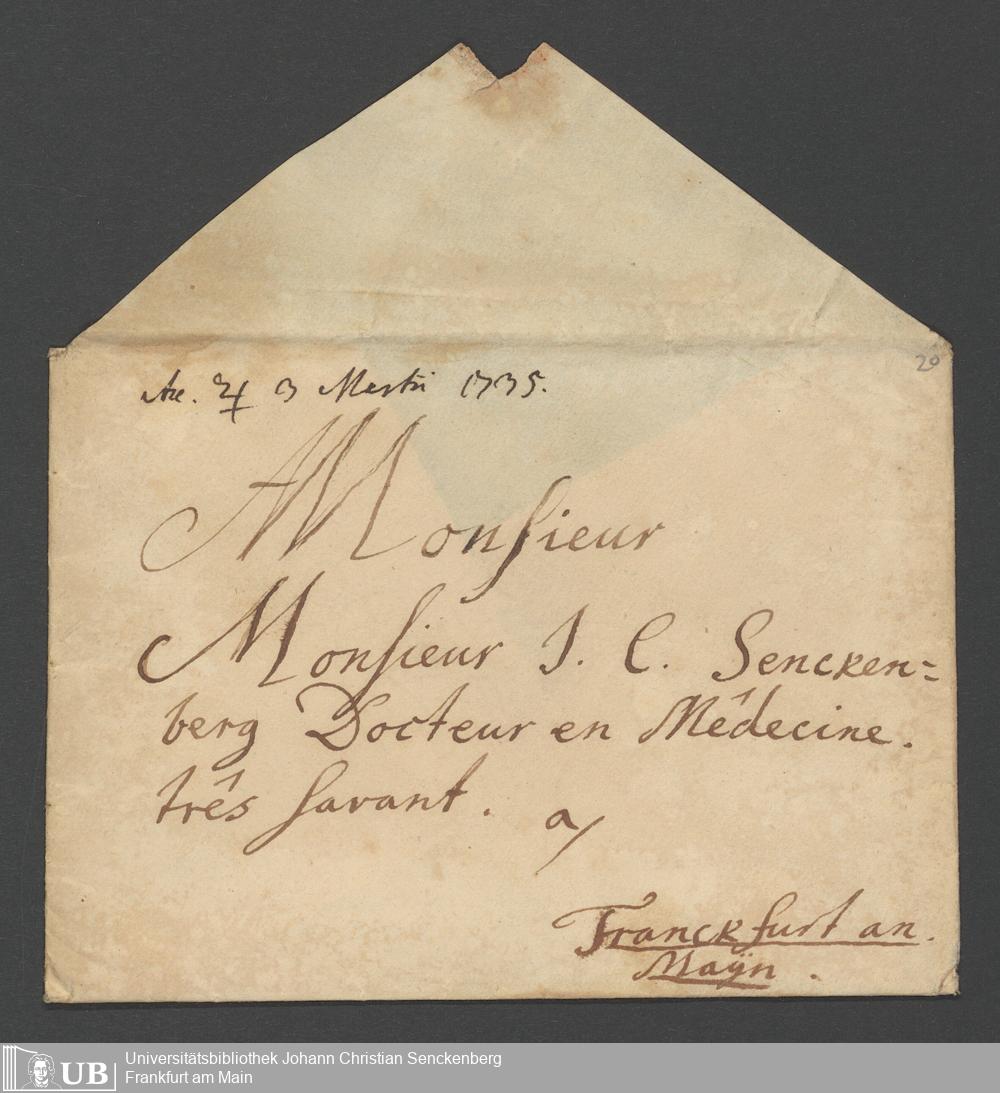 Acc. ♃ 3 Martii 1735.
20
A Monsieur
Monsieur J. C. Sencken=
berg Docteur en Médecine.
très savant. a
Franckfurt an.
Maÿn.
UB
Universitätsbibliothek Johann Christian Senckenberg
Frankfurt am Main